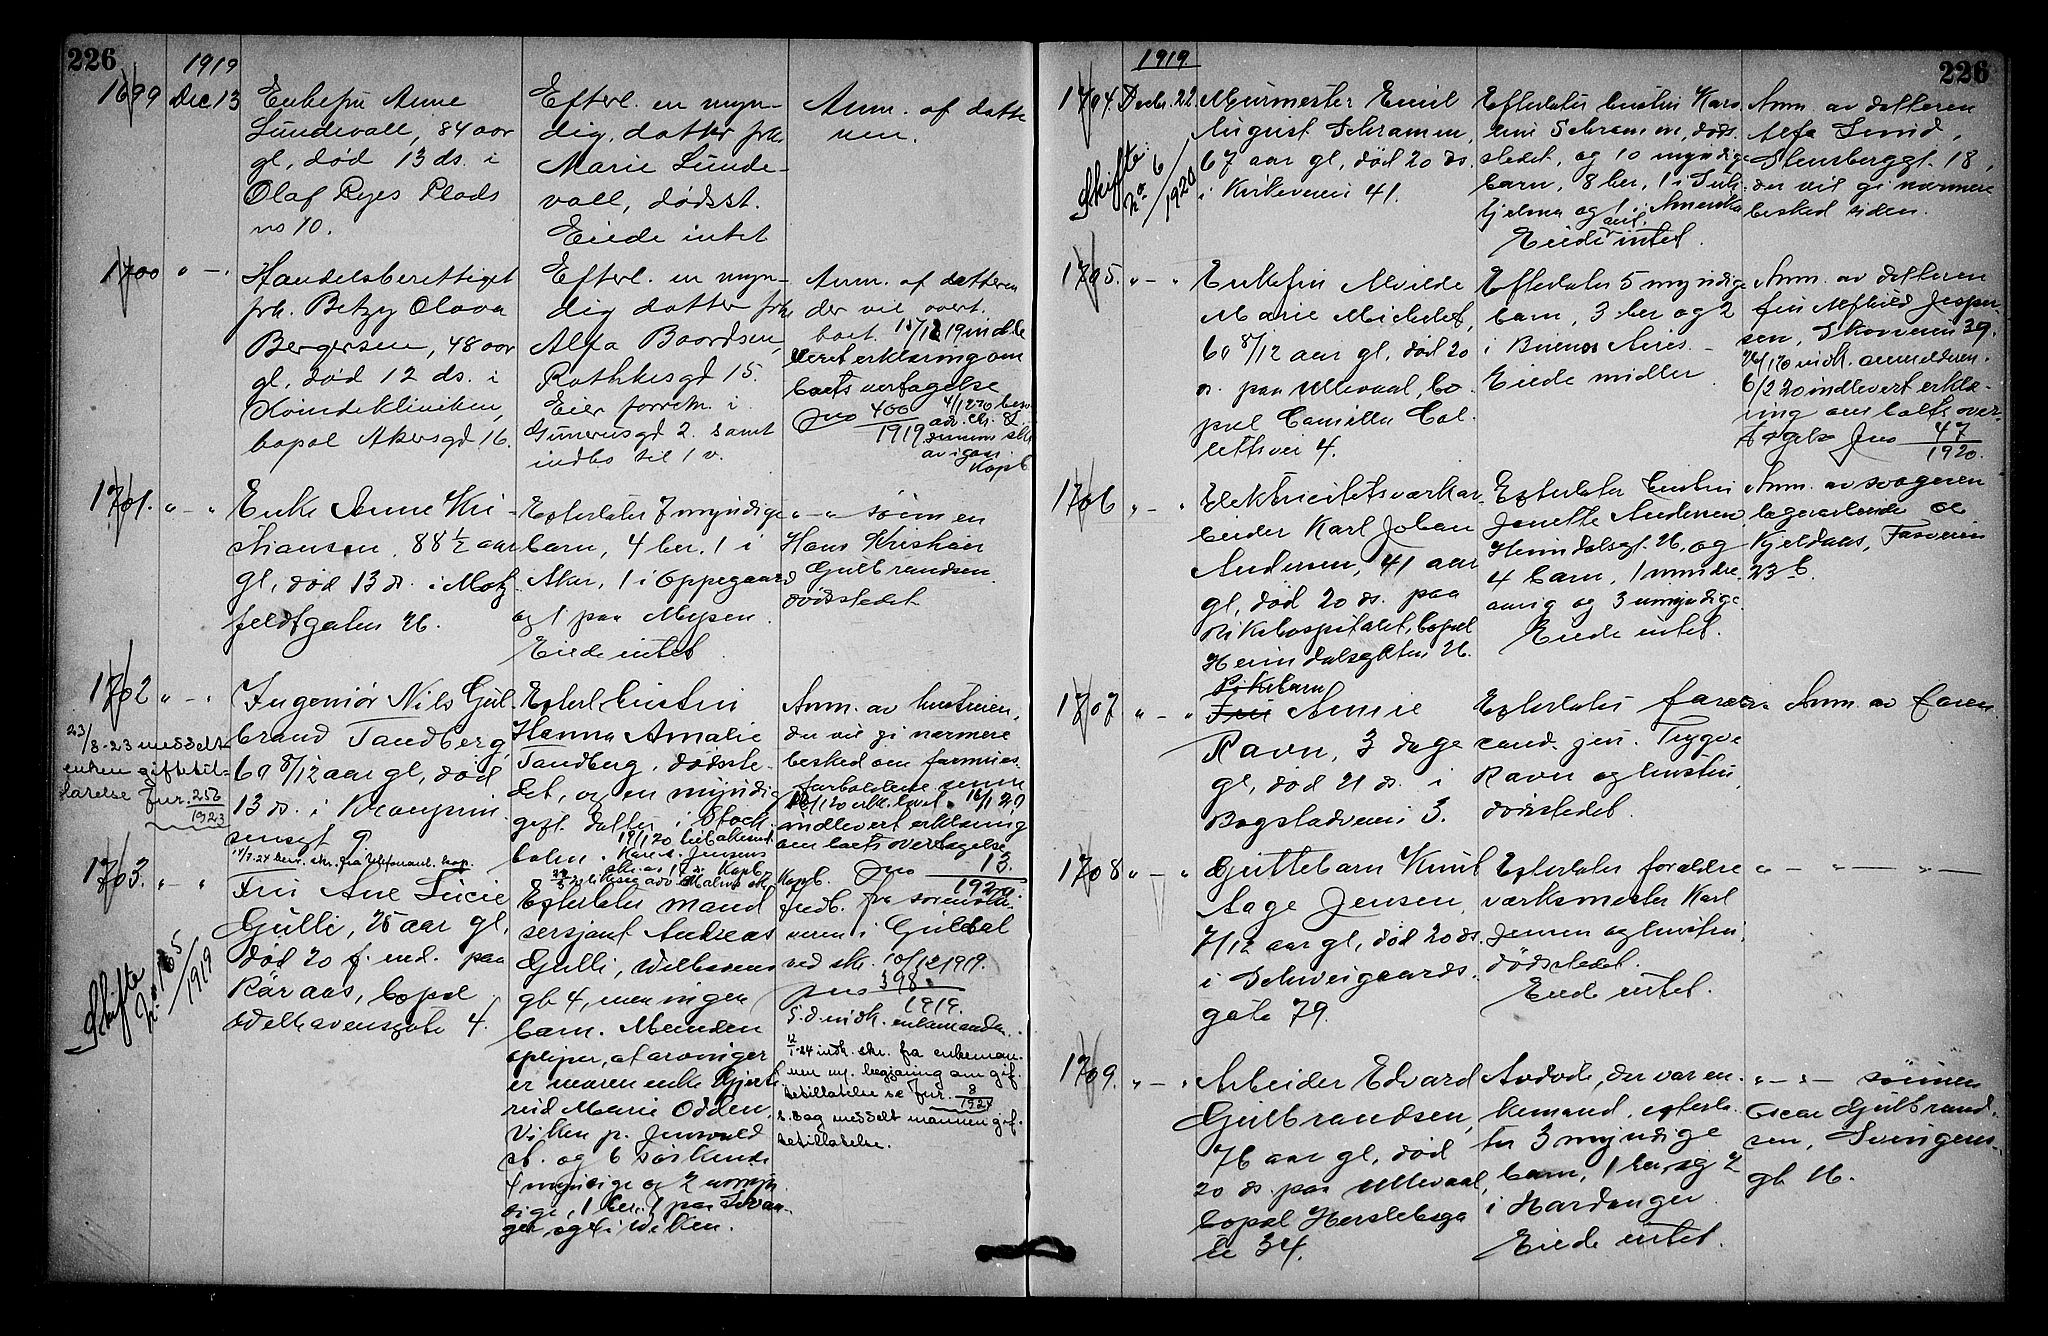 226
1919
1699 Dec 13
Enkefru Anne
Lundevall, 84 aar
gl, død 13 ds. i
Olaf Ryes Plads
no 10.
Efterl. en myn-
dig datter frk.
Marie Lunde-
vall, dødsst.
Eiede intet
Anm. af datte
ren.
1700 " — "
Handelsberettiget
frk. Betzy Olava
Bergersen, 48 aar
gl, død 12 ds. i
Kvindekliniken,
bopal Akersgd 16.
Efterl. en myn-
dig datter frk.
Alfa Baardsen,
Rathkesgd 15.
Eier forretn. i
Gunerusgd 2. samt
indbo til 1 v.
Anm. af datteren
der vil overt.
boet. 15/12 19 indle
veret erklæring om
boets overtagelse
Jno 400
1919
1701. " — "
Enke Anne Kri-
stiansen, 88 1/2 aar
gl, død 13 ds. i Motz
feldtgaten 26.
Efterlater 7 myndige
barn, 4 her. 1 i
Aker, 1 i Oppegaard
og 1 paa Mysen.
Eiede intet.
" — " sønnen
Hans Kristian
Gulbrandsen
dødsstedet
1702 " — "
23/8-23 meddelt
enken giftetil-
ladelse Jnr. 256
1923
Ingeniør Nils Gul
brand Tandberg,
60 8/12 aar gl, død
13 ds. i Kronprin
sensgt 9.
Efterl hustru
Hanna Amalie
Tandberg, dødsste-
det, og en myndig
gift datter i Stock
holm.
Anm. av hustruen,
der vil gi nærmere
besked om formues
forholdene senere
indlevert erklæring
om boets overtagelse
Jno 13.
1920
1703. " — "
Skifte
No 165
/1919
Fru Ane Lucie
Gulli, 25 aar gl,
død 20 f. md. paa
Røraas, bopal
Welhavensgate 4.
Efterlater mand
sersjant Andreas
Gulli, Welhavens
gt 4, men ingen
barn. Manden
oplyser, at arvinger
er moren enke Gjert
rud Marie Odden,
Viken p. Jenwald
st. og 6 søskende
4 myndige og 2 umyn
dige, 1 her. 1 paa Stran
gen, og 4 i Wiken.
ved skr. 10/12 1919.
Jno 398
1919.
S. d. indk. enkemanden.
12/1-24 indk. skr. fra enkeman-
nen m. begjæring om gif-
tetillatelse se Jnr. 8
1924
s. dag meddelt mannen gif-
tetillatelse.
226
1919.
1704. Decbr. 22.
Skifte
No 6
/1920
Murmester Emil
August Schramm,
67 aar gl, død 20 ds.
i Kirkeveien 41.
Efterlater hustru Karo
line Schramm, døds-
stedet, og 10 myndige
barn, 8 her, 1 i
og 1 i Amerika
Eiede intet.
Anm. av datteren
Alfa
Stensberggt. 18,
der vil gi nærmere
besked siden.
1705. " — "
Enkefru Alvilde
Marie Michelet,
60 8/12 aar gl, død 20
ds. paa Ullevaal, bo
pæl Camilla Col-
lettsvei 4.
Efterlater 5 myndige
barn, 3 her og 2
i Buenos Aires. —
Eiede midler.
Anm. av datteren
fru Alfhild Jesper-
sen, Skovveien 39.
indk. anmelderen.
6/2 20 indlevert erklæ-
ring om boets over-
tagelse Jno 47
1920.
1706 " — "
Elektricitetsverkar
beider Karl Johan
Andersen, 41 aar
gl, død 20 ds. paa
Rikshospitalet, bopæl
Heimdalsgaten 26.
Efterlater hustru
Jonette Andersen,
Heimdalsgt. 26, og
4 barn, 1 mindre
aarig og 3 umyndige.
Eiede intet.
Anm. av svogeren
lagerarbeider
Kjeldaas,
23 b.
1707 " — "
Pikebarn
Fru Annie
Ravn, 3 dage
gl, død 21 ds. i
Bogstadveien 3.
Efterlater foreldre
cand. jur. Trygve
Ravn og hustru,
dødsstedet.
Anm. av faren.
1708 " — "
Guttebarn Knut
Aage Jensen,
7/12 aar gl, død 20 ds.
i Schweigaards
gate 79.
Efterlater forældre
værksmester Karl
Jensen og hustru,
dødsstedet.
Eiede intet.
" — " — " —
1709. " — "
Arbeider Edvard
Gulbrandsen,
76 aar gl, død
20 ds. paa Ullevaal,
bopal Herslebsga
te 34.
Avdøde, der var en-
kemand, efterla-
ter 3 myndige
barn, 1 her og 2
i Hardanger.
Eiede intet.
" — " — sønnen
Oscar Gulbrand-
sen,
gt 16.